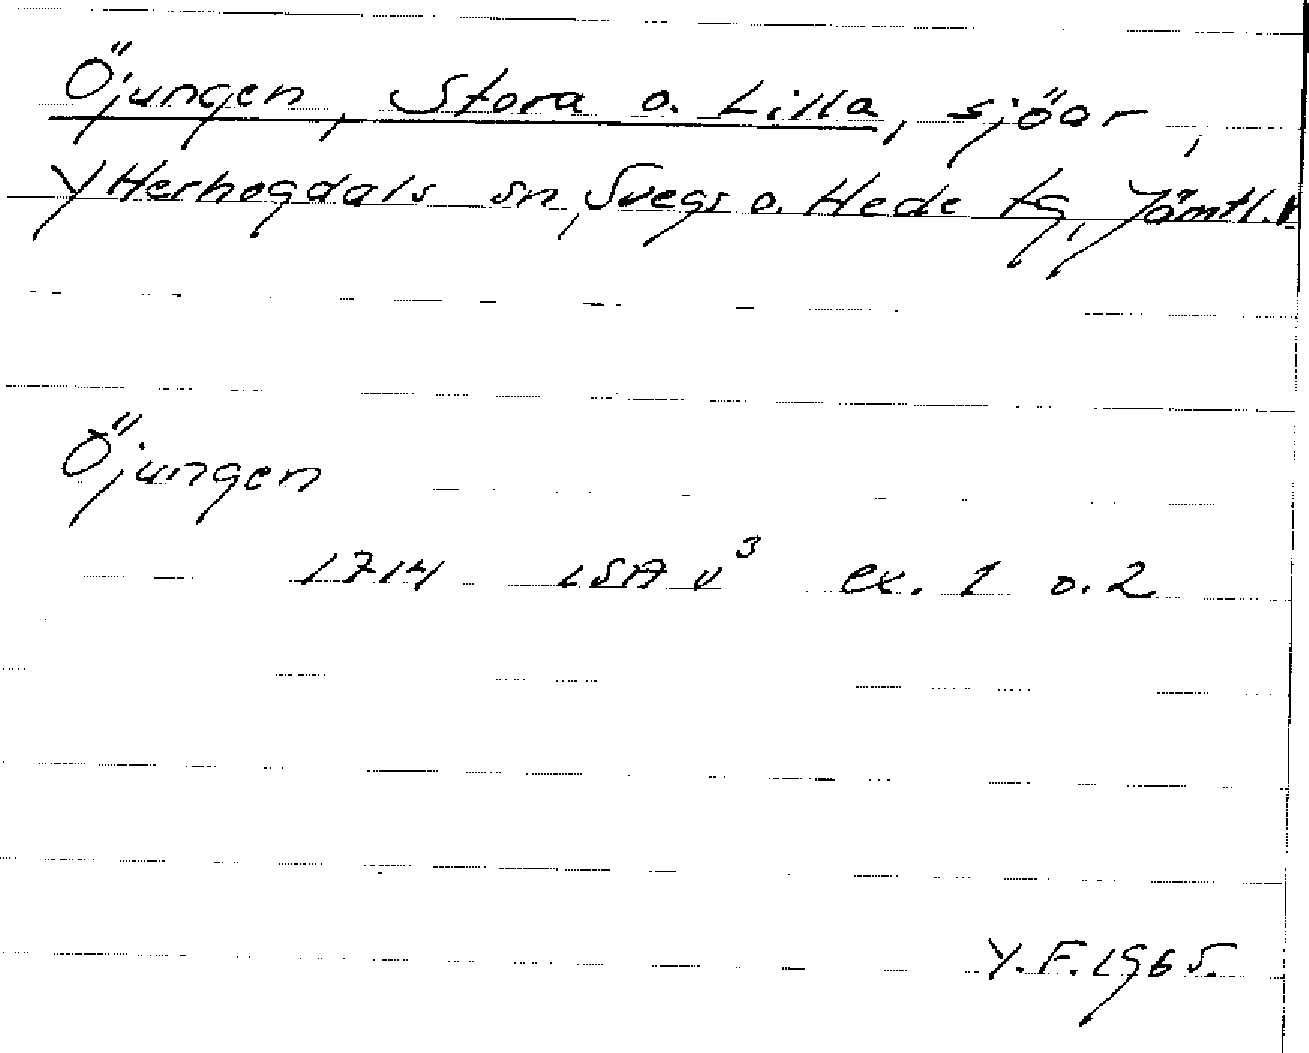 Öjungen, Stora o. Lilla, sjöar,
Ytterhogdals sn, Svegs o. Hede tg, Jämtl.
Öjungen
1714 LSA v³ ex. 1 o. 2
Y.F. 1965.